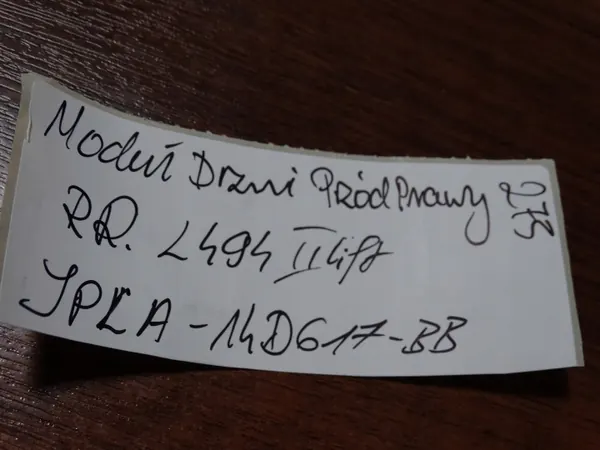 Moduł Drzwi Przód Prawy
RR. L494 II lift
JPLA-14D617-BB
273